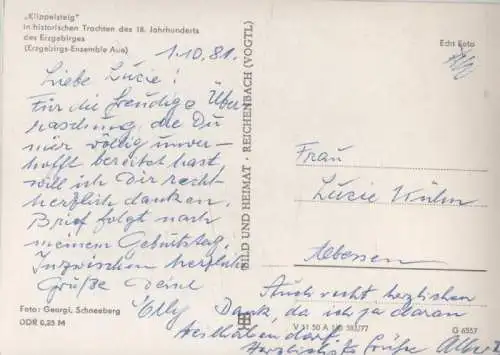 „Klippelsteig"
in historischen Trachten des 18. Jahrhunderts
des Erzgebirges
(Erzgebirgs-Ensemble Aue)
1.10.81.
Liebe Lucie!
Für die freudige Über-
raschung, die Du
mir völlig unver-
hofft bereitet hast,
will ich Dir recht
herzlich danken.
Brief folgt nach
meinem Geburtstag.
Inzwischen herzliche
Grüße Deine
Elly
Foto: Georgi, Schneeberg
DDR 0,25 M
BILD UND HEIMAT · REICHENBACH (VOGTL)
Echt Foto
Frau
Lucie Kühn
Auch recht herzlichen
Dank, da ich ja daran
V 11 50 A 1/B 583/77
G 6557
teilhaben darf
Herzlichste Grüße